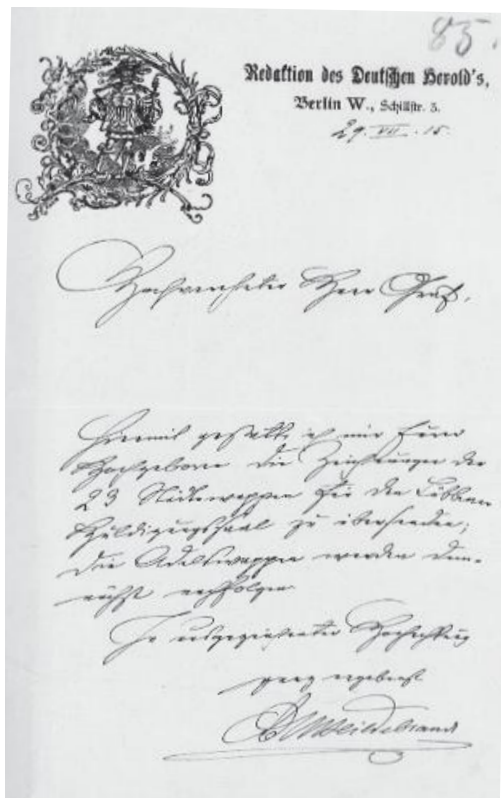 85.
Redaktion des Deutschen Herold's,
Berlin W., Schillstr. 3.
29. VII. 15.
Hochverehrter Herr Graf,
Hiermit gestatte ich mir Euer
Hochgeboren die Zeichnungen der
23 Städtewappen für den Lübbener
Huldigungssaal zu übersenden;
die Adelswappen werden dem-
nächst nachfolgen.
In ausgezeichneter Hochachtung
ganz ergebenst
Hildebrandt